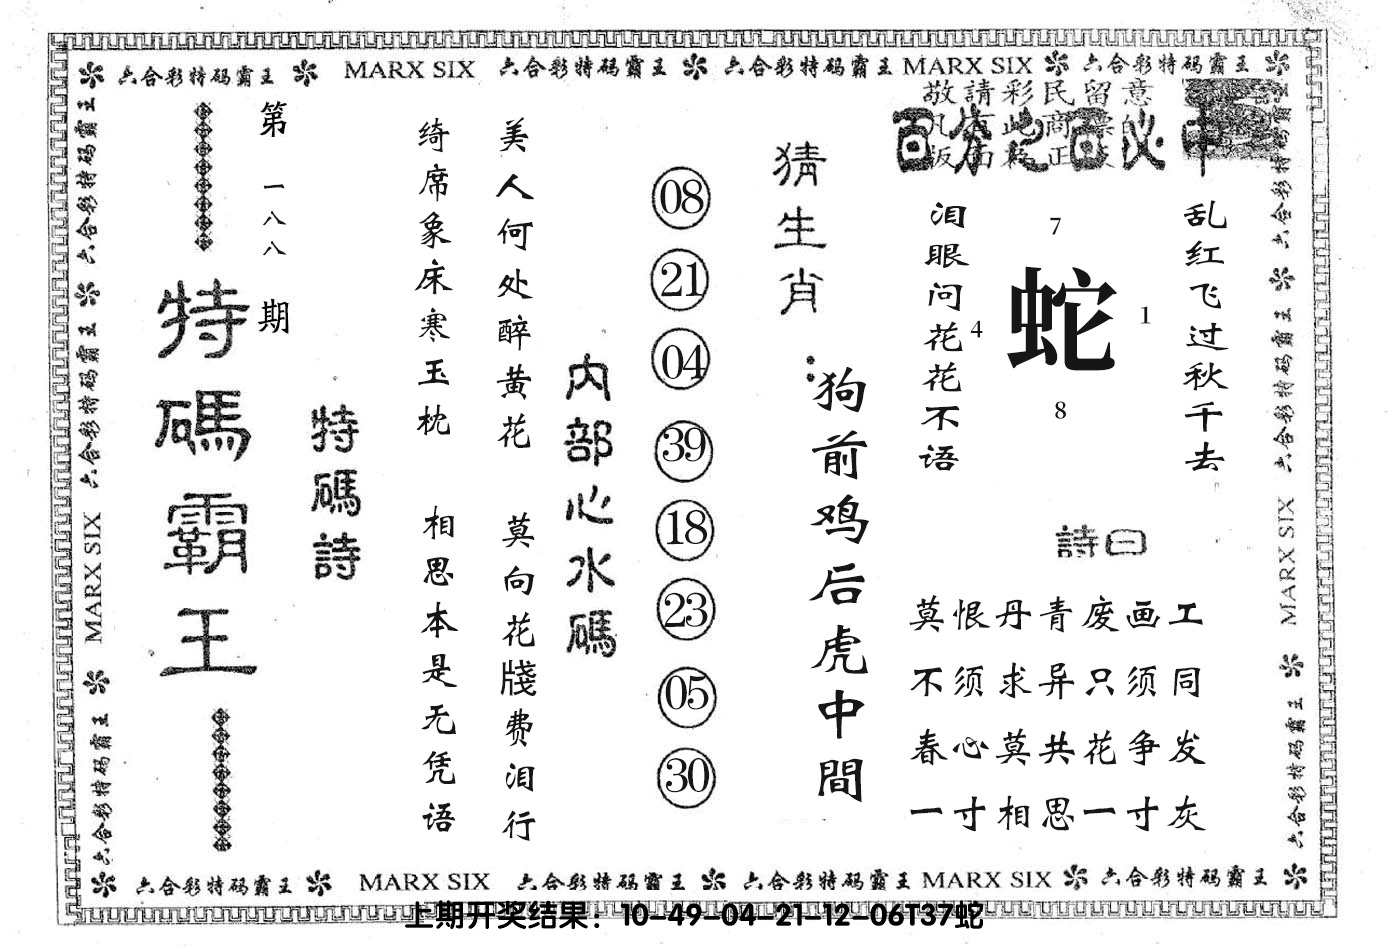 六合彩特码霸王 MARX SIX 六合彩特码霸王 六合彩特码霸王 MARX SIX 六合彩特码霸王
敬請彩民留意
百分之百必中
乱红飞过秋千去
泪眼问花花不语
7
4
蛇
1
8
詩曰
莫恨丹青废画工
不须求异只须同
春心莫共花争发
一寸相思一寸灰
猜生肖：
狗前鸡后虎中間
08
21
04
39
18
23
05
30
内部心水碼
美人何处醉黄花 莫向花牋费泪行
绮席象床寒玉枕 相思本是无凭语
特碼詩
第一八八期
特碼霸王
六合彩特码霸王 六合彩特码霸王 MARX SIX 六合彩特码霸王
六合彩特码霸王 六合彩特码霸王 MARX SIX 六合彩特码霸王
六合彩特码霸王 MARX SIX 六合彩特码霸王 六合彩特码霸王 MARX SIX 六合彩特码霸王
上期开奖结果：10-49-04-21-12-06T37蛇